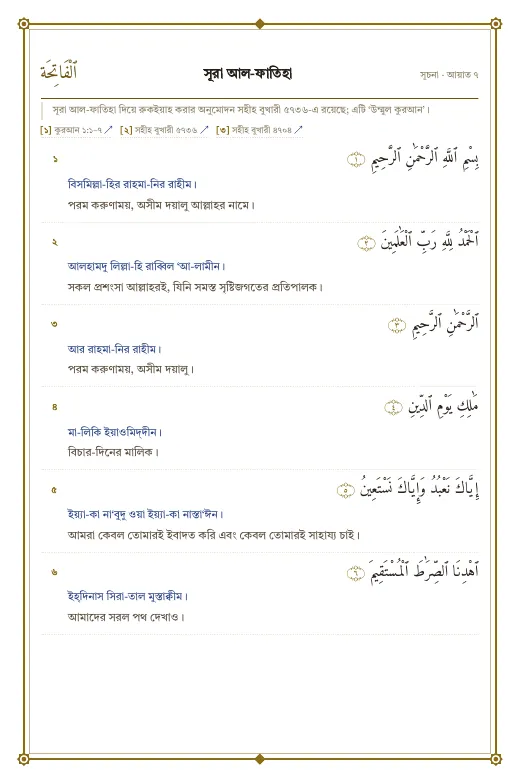 ٱلْفَاتِحَة সূরা আল-ফাতিহা সূচনা · আয়াত ৭
সূরা আল-ফাতিহা দিয়ে রুকইয়াহ করার অনুমোদন সহীহ বুখারী ৫৭৩৬-এ রয়েছে; এটি ‘উম্মুল কুরআন’।
[১] কুরআন ১:১-৭ ↗ [২] সহীহ বুখারী ৫৭৩৬ ↗ [৩] সহীহ বুখারী ৪৭০৪ ↗
১ بِسْمِ ٱللَّهِ ٱلرَّحْمَٰنِ ٱلرَّحِيمِ ١
বিসমিল্লা-হির রাহমা-নির রাহীম।
পরম করুণাময়, অসীম দয়ালু আল্লাহর নামে।
২ ٱلْحَمْدُ لِلَّهِ رَبِّ ٱلْعَٰلَمِينَ ٢
আলহামদু লিল্লা-হি রাব্বিল ‘আ-লামীন।
সকল প্রশংসা আল্লাহরই, যিনি সমস্ত সৃষ্টিজগতের প্রতিপালক।
৩ ٱلرَّحْمَٰنِ ٱلرَّحِيمِ ٣
আর রাহমা-নির রাহীম।
পরম করুণাময়, অসীম দয়ালু।
৪ مَٰلِكِ يَوْمِ ٱلدِّينِ ٤
মা-লিকি ইয়াওমিদ্দীন।
বিচার-দিনের মালিক।
৫ إِيَّاكَ نَعْبُدُ وَإِيَّاكَ نَسْتَعِينُ ٥
ইয়্যা-কা না‘বুদু ওয়া ইয়্যা-কা নাস্তা‘ঈন।
আমরা কেবল তোমারই ইবাদত করি এবং কেবল তোমারই সাহায্য চাই।
৬ ٱهْدِنَا ٱلصِّرَٰطَ ٱلْمُسْتَقِيمَ ٦
ইহ্দিনাস সিরা-তাল মুস্তাক্বীম।
আমাদের সরল পথ দেখাও।